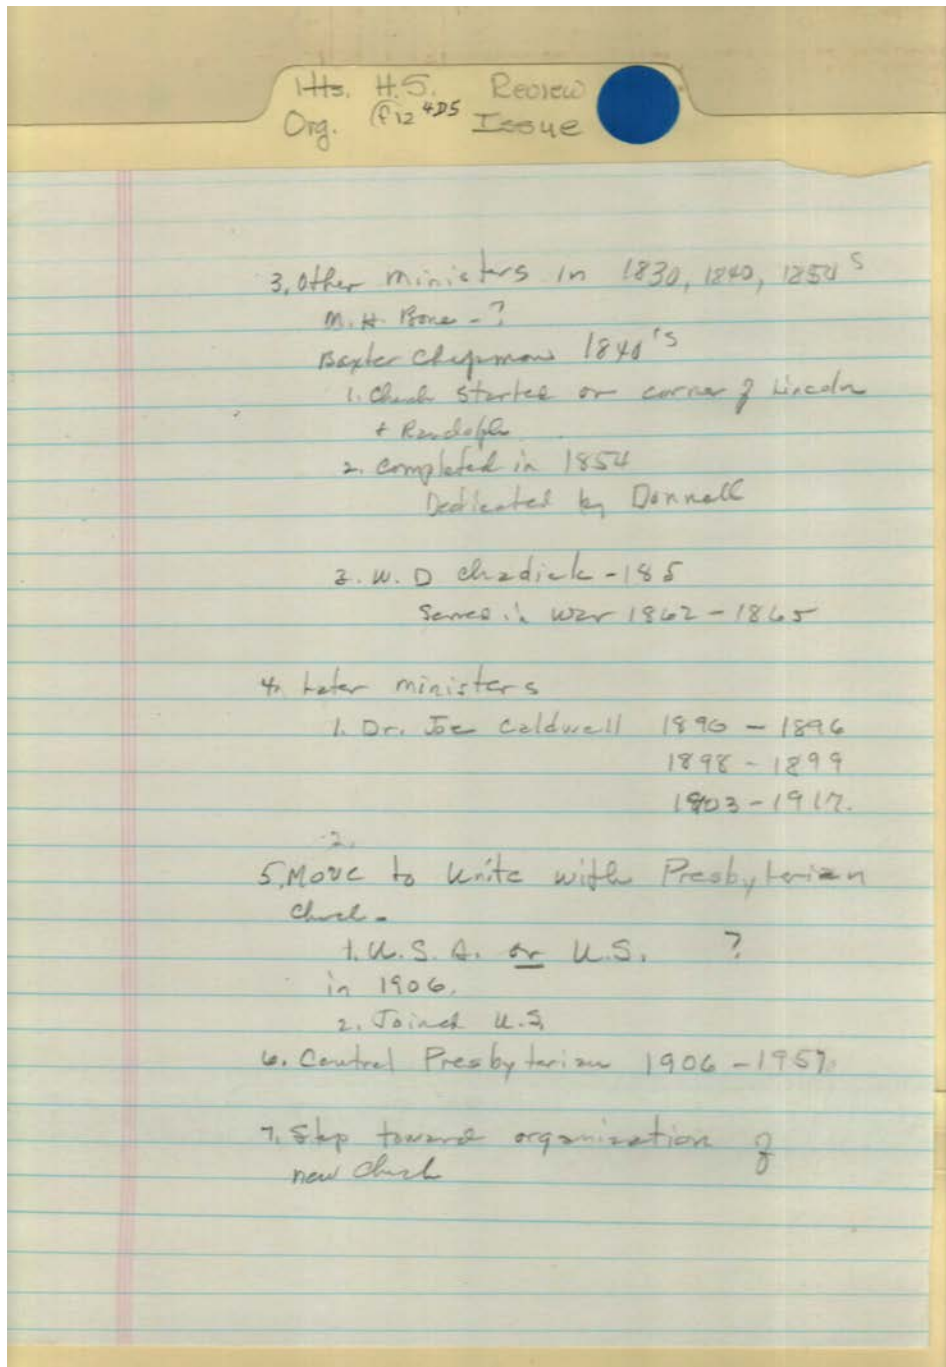 Hts. H.S. Review
Org. P12 4D5 Issue
3. Other ministers in 1830, 1840, 1850's
M. H. Bone - ?
Baxter Chapman 1840's
1. Church started on corner of Lincoln
+ Randolph
2. Completed in 1854
Dedicated by Donnell
3. W. D Chadick - 185
Served in war 1862 - 1865
4. Later ministers
1. Dr. Joe Caldwell 1890 - 1896
1898 - 1899
1903 - 1917.
2.
5. Move to Unite with Presbyterian
Church.
1. U.S.A. or U.S. ?
in 1906.
2. Joined U.S.
6. Central Presbyterian 1906 - 1957
7. Step toward organization of
new Church